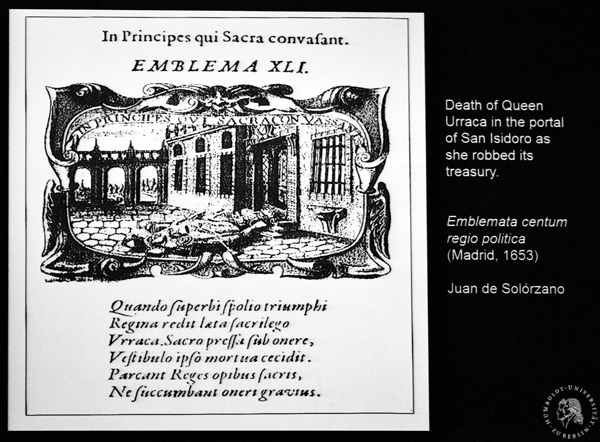 In Principes qui Sacra convasant.
EMBLEMA XLI.
IN PRINCIPES QVI SACRA CONVASSANT
Quando ſuperbi ſpolio triumphi
Regina redit læta ſacrilego
Vrraca. Sacro preſſa ſub onere,
Veſtibulo ipſo mortua cecidit.
Parcant Reges opibus ſacris,
Ne ſuccumbant oneri gravius.
Death of Queen
Urraca in the portal
of San Isidoro as
she robbed its
treasury.
Emblemata centum
regio politica
(Madrid, 1653)
Juan de Solórzano
HUMBOLDT-UNIVERSITÄT ZU BERLIN